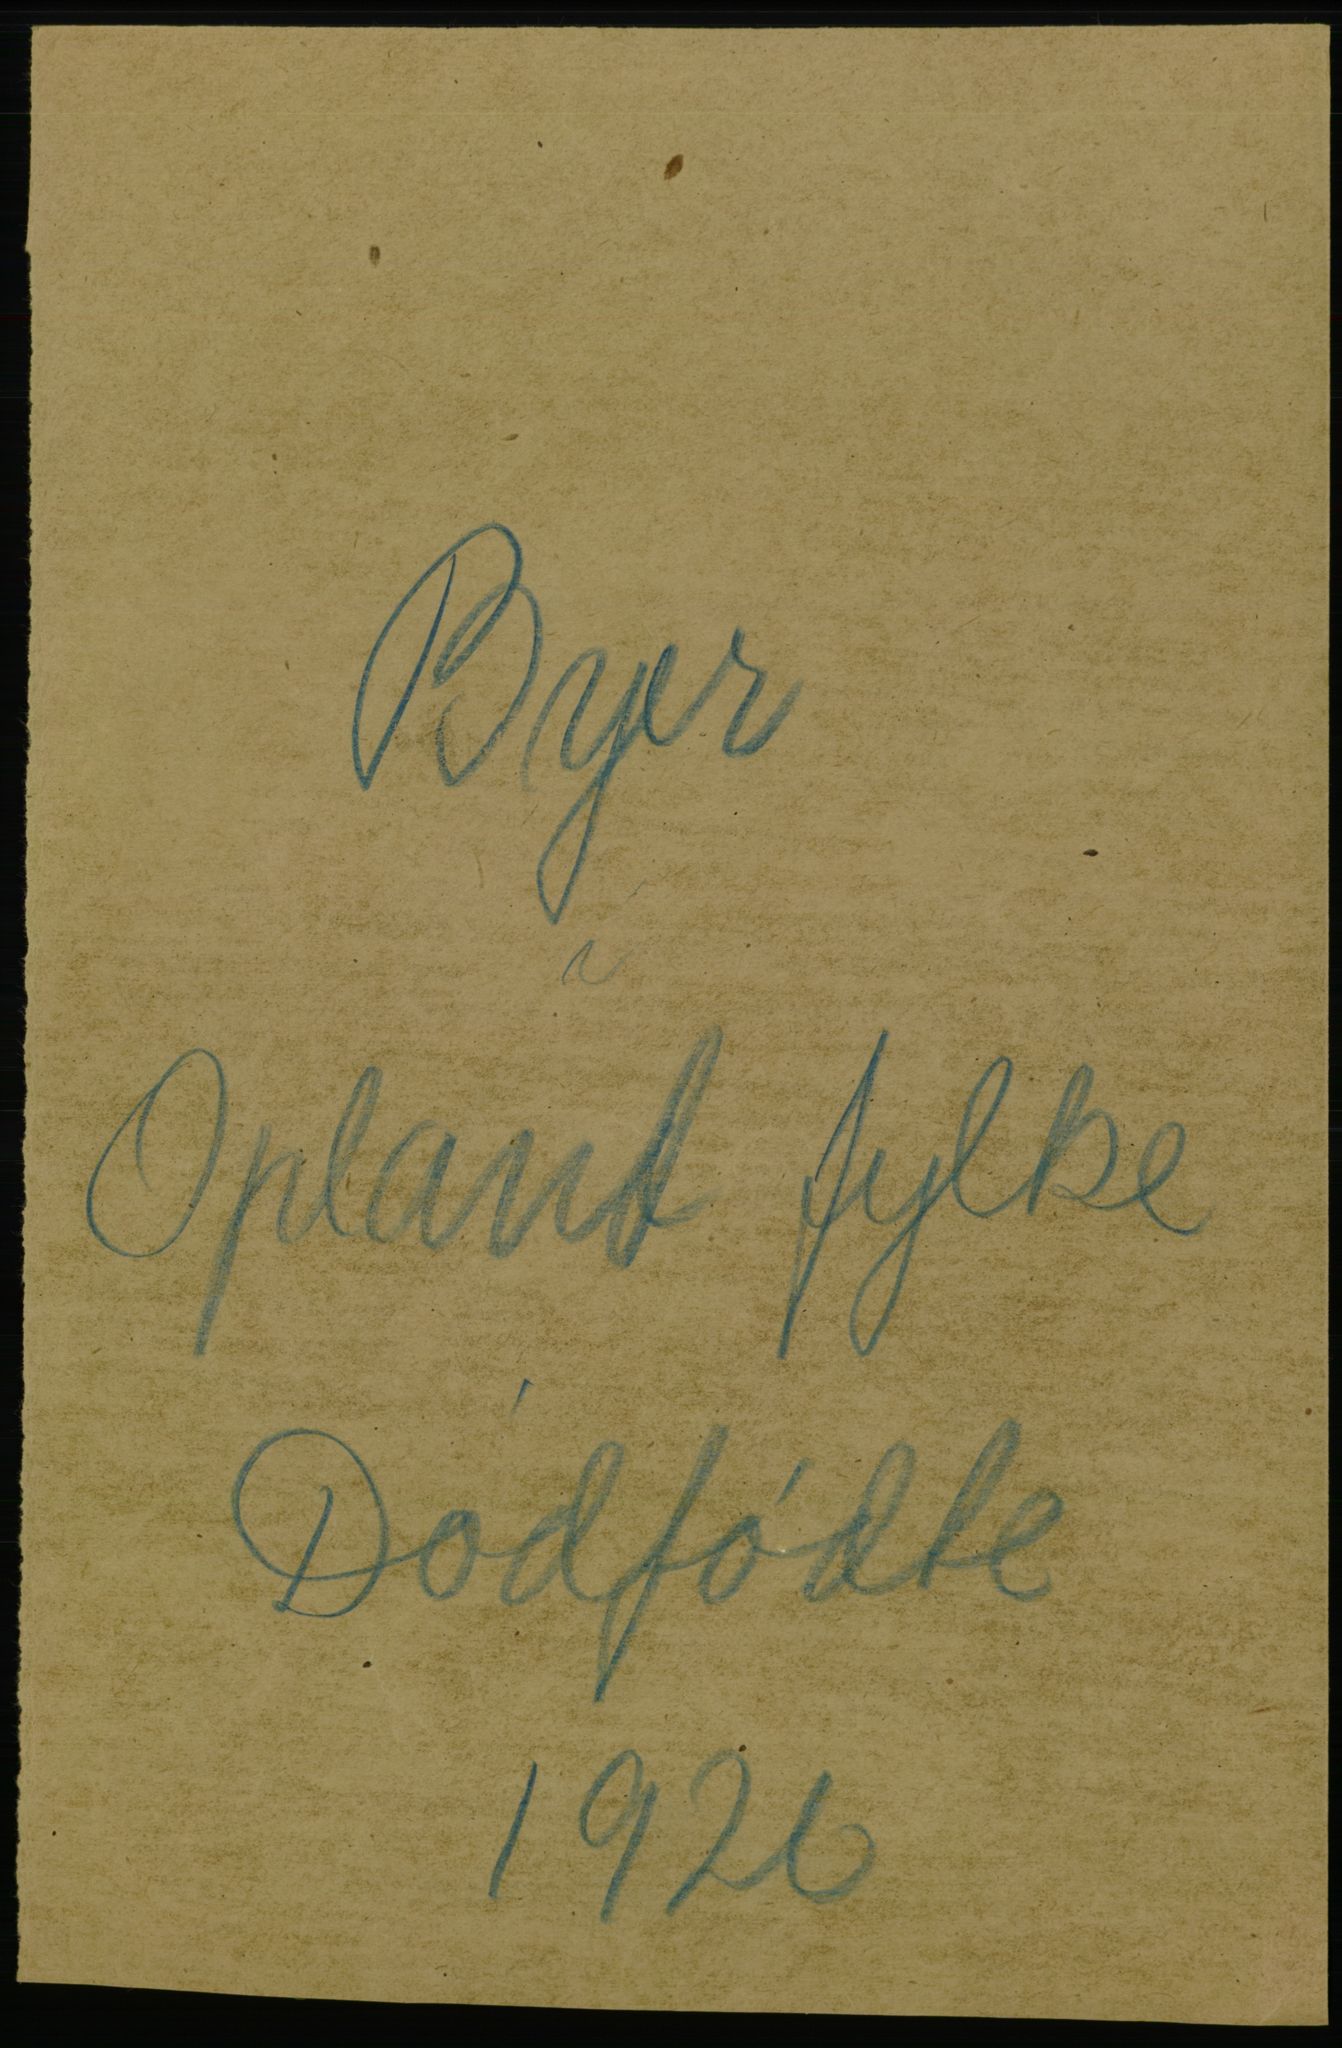 Byer
i
Opland fylke
Dødfødte
1926